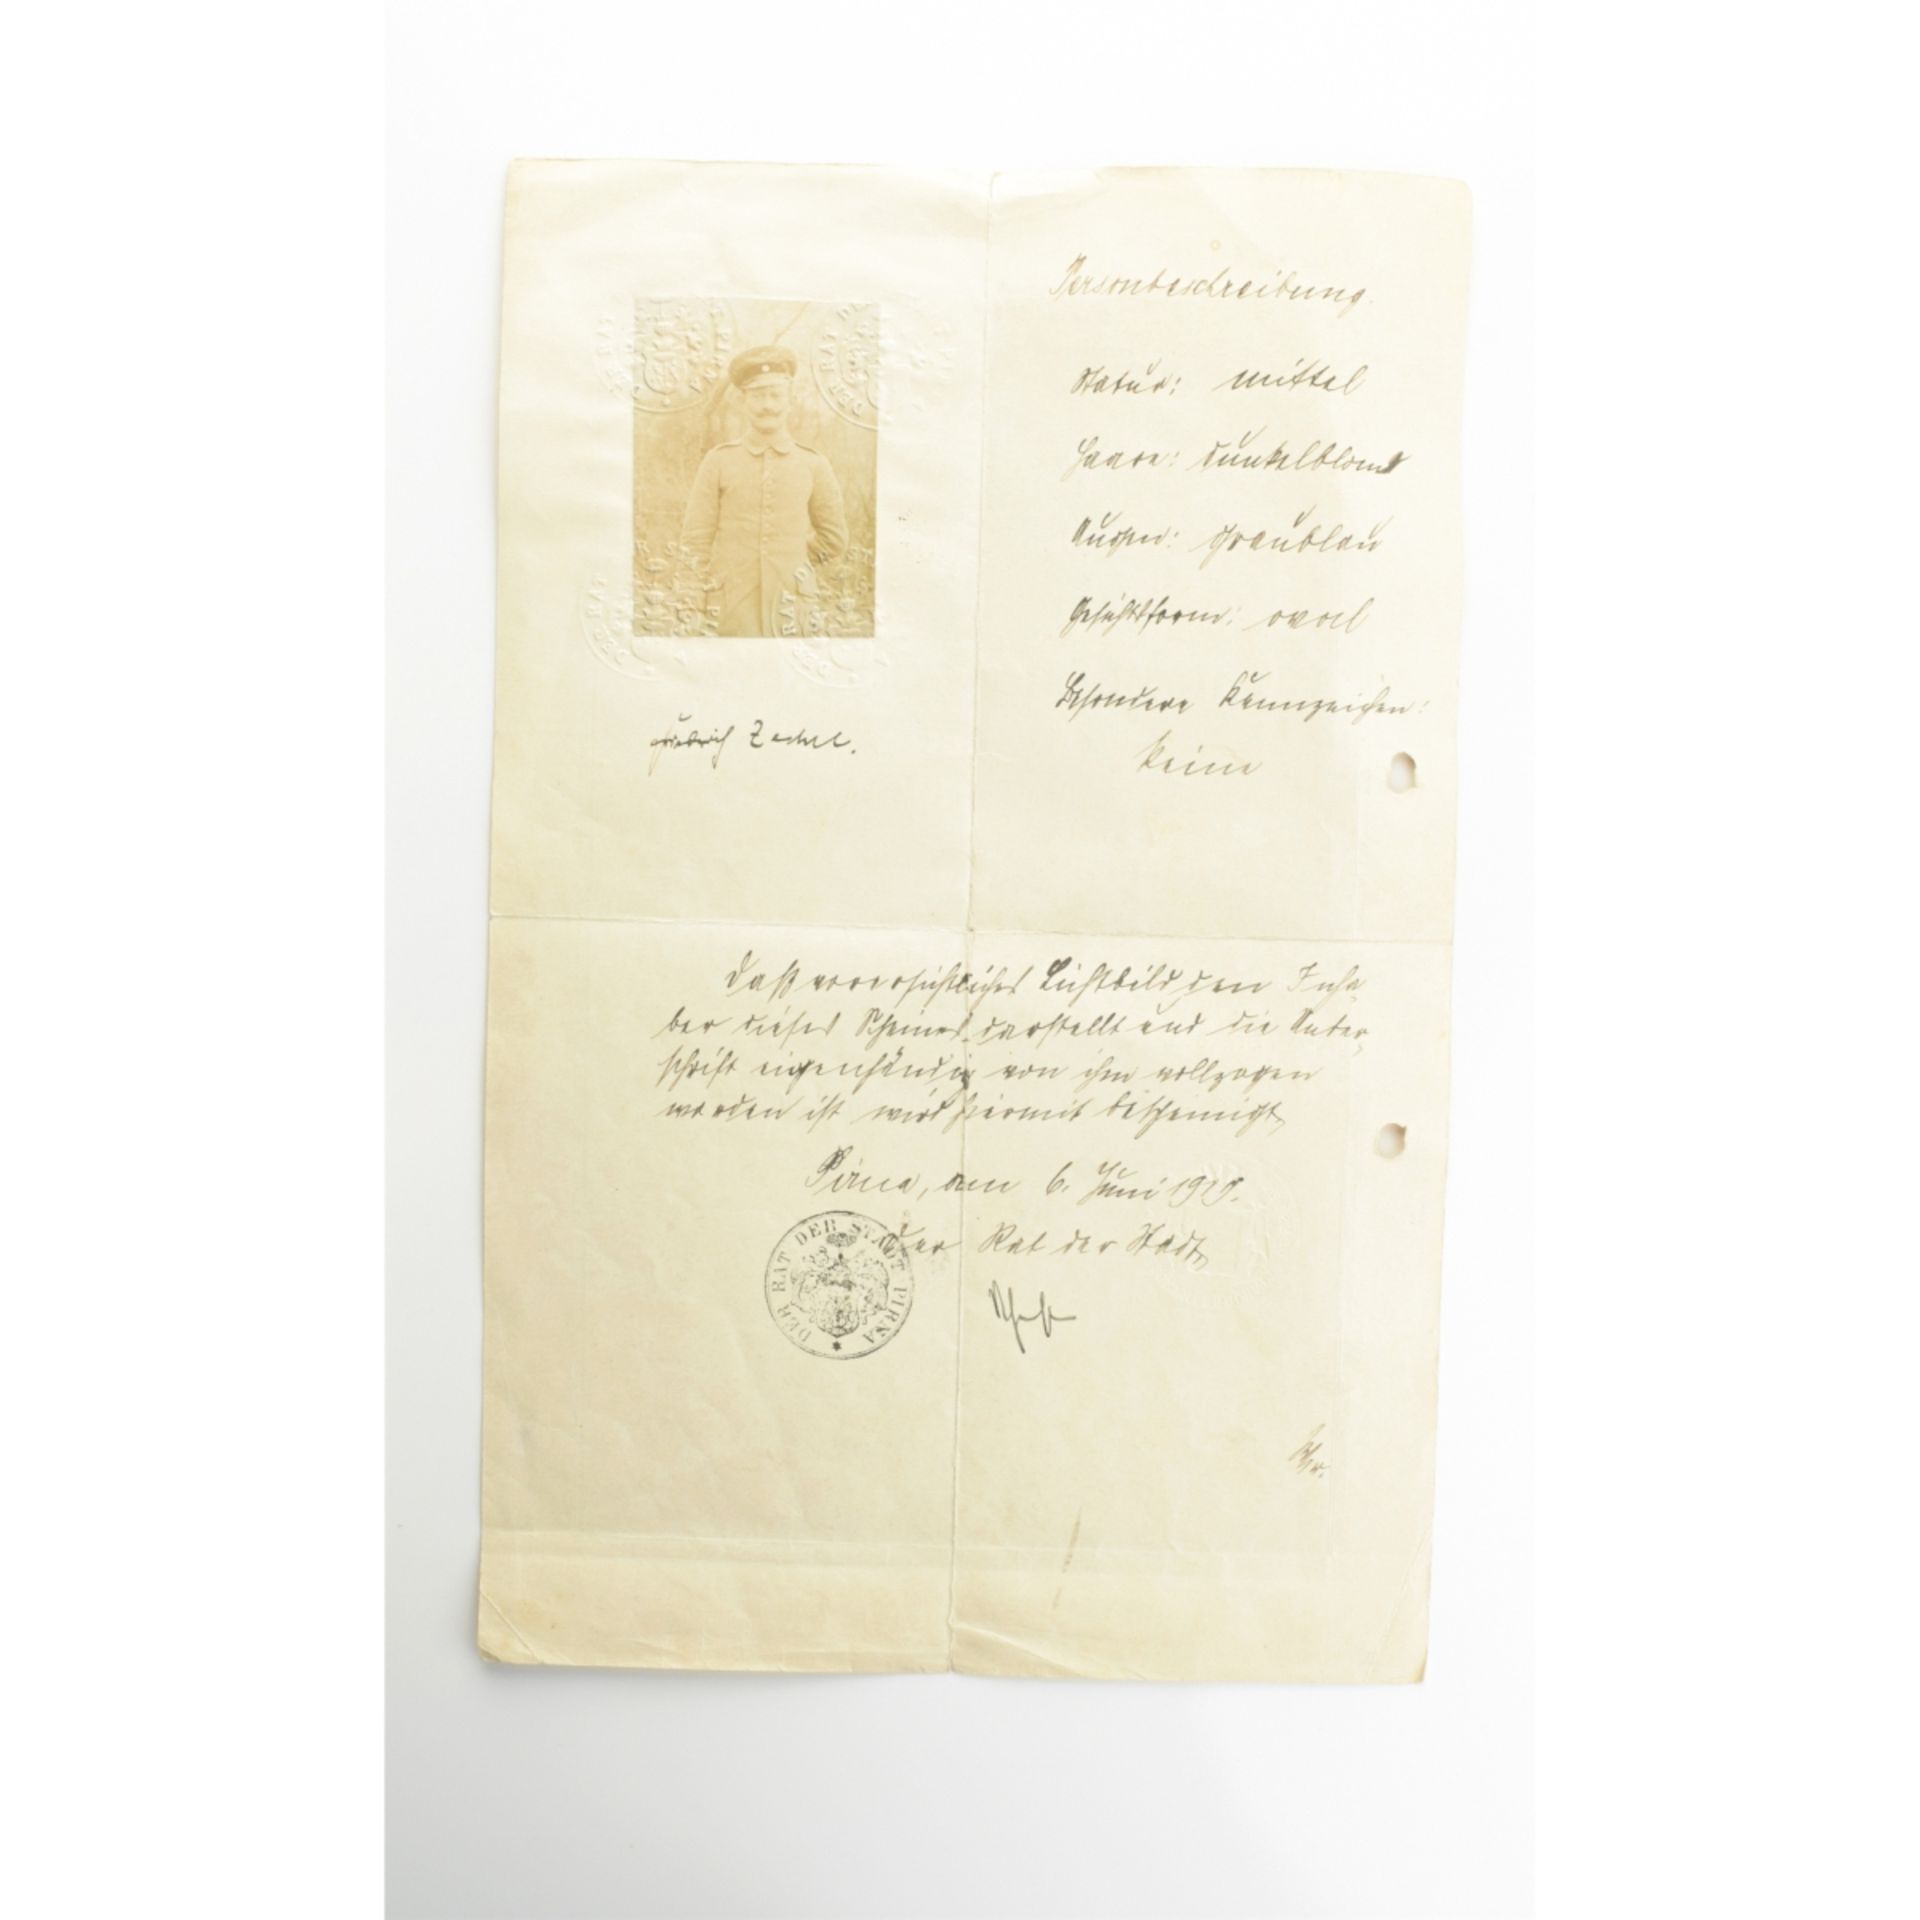 Personbeschreibung.
Statur: mittel
Haare: dunkelblond
Augen: graublau
Gesichtsform: oval
Besondere Kennzeichen:
keine
DER RAT DER STADT PIRNA
Friedrich
Daß vorersichtliches Lichtbild den Inha-
ber dieses Scheines darstellt und die Unter-
schrift eigenhändig von ihm vollzogen
worden ist wird hiermit bescheinigt.
Pirna, am 6. Juni 1919.
Der Rat der Stadt,
DER RAT DER STADT PIRNA